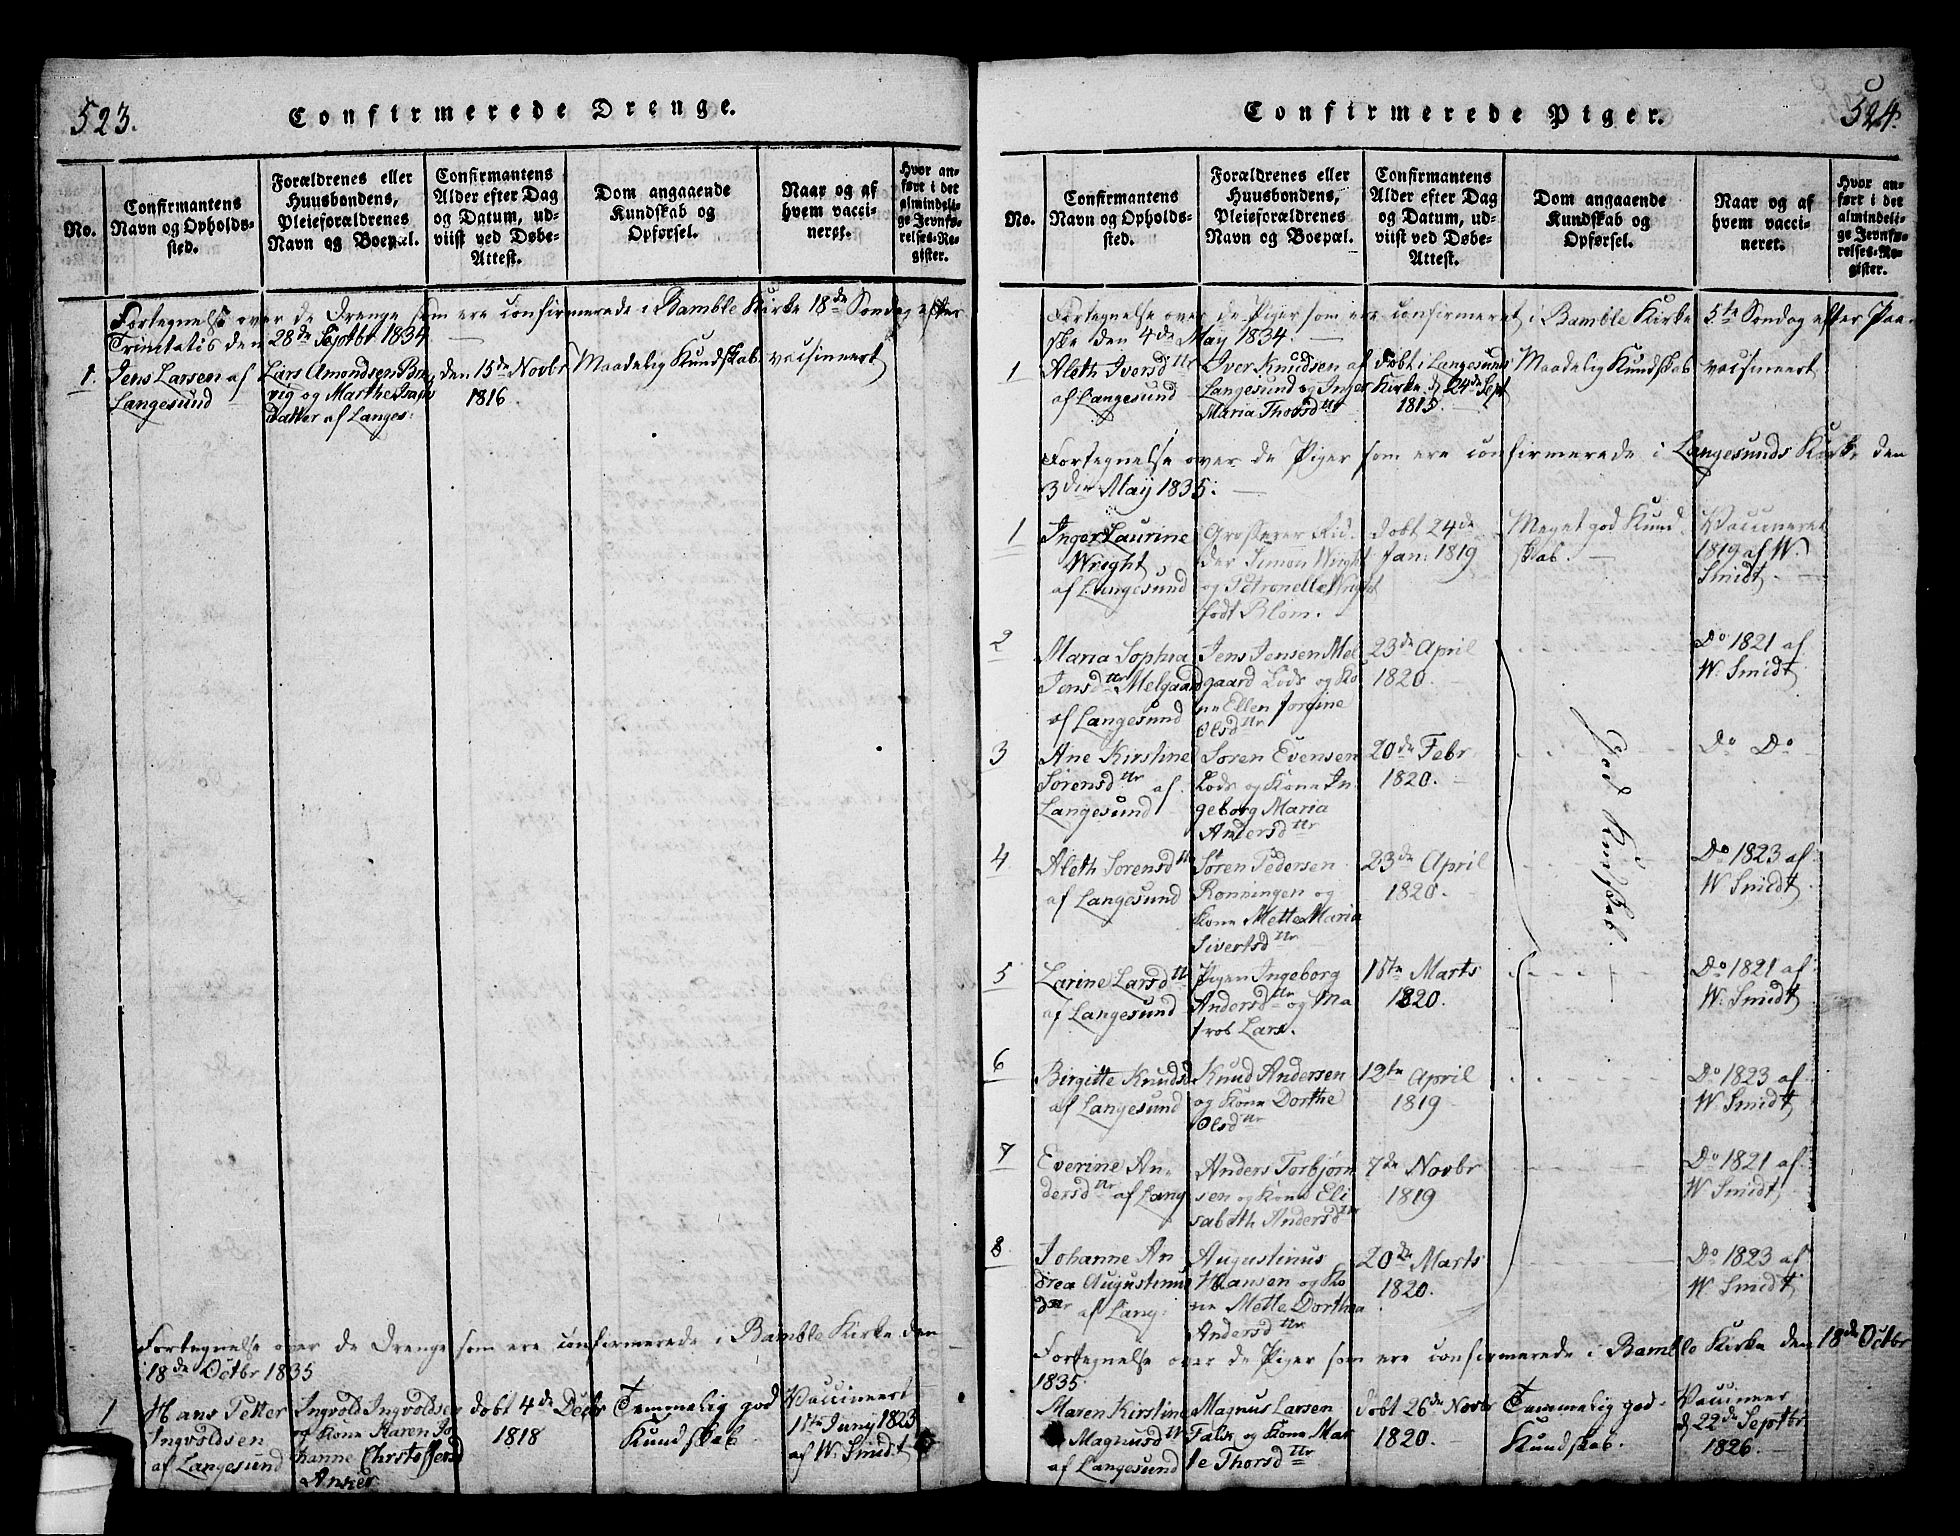 523.
Confirmerede Drenge.
No.
Confirmantens
Navn og Opholds-
sted.
Forældrenes eller
Huusbondens,
Pleieforældrenes
Navn og Boepæl.
Confirmantens
Alder efter Dag
og Datum, ud-
viist ved Døbe-
Attest.
Dom angaaende
Kundskab og
Opførsel.
Naar og af
hvem vacci-
neret.
Hvor an-
ført i det
almindeli-
ge Jevnfø-
relses-Re-
gister.
Fortegnelse over de Drenge som ere confirmerede i Bamble Kirke 18de Søndag efter
Trinitatis den 28de Septbr 1834.
1.
Jens Larsen af
Langesund
Lars Amondsen Bre
vig og Marthe
Datter af Langes:
den 15de Novbr
1816.
Maadelig Kundskab.
vacsineert
Fortegnelse over de Drenge som ere confirmerede i Bamble Kirke den
18de Octbr 1835
1
Hans Petter
Ingvoldsen
af Langesund
Ingvold Ingvoldsen
og Kone Karen Jo
hanne Christoffersd
Anker
døbt 4de Decbr
1818
Temmelig god
Kundskab.
Vaccineert
1ste Juny 1823
af W. Smidt
524.
Confirmerede Piger.
No.
Confirmantens
Navn og Opholds-
sted.
Forældrenes eller
Huusbondens,
Pleieforældrenes
Navn og Boepæl.
Confirmantens
Alder efter Dag
og Datum, ud-
viist ved Døbe-
Attest.
Dom angaaende
Kundskab og
Opførsel.
Naar og af
hvem vacci-
neret.
Hvor an-
ført i det
almindeli-
ge Jevnfø-
relses-Re-
gister.
Fortegnelse over de Piger som ere confirmeret i Bamble Kirke 5te Søndag efter Paa-
ske den 4de May 1834.
1
Aleth Iversdtr
af Langesund
Iver Knudsen af
Langesund og Inger
Maria Thorsdtr
Døbt i Langesunds
Kirke d 24de Sept
1815.
Maadelig Kundskab
vacsineert
Fortegnelse over de Piger som ere confirmerede i Langesunds Kirke den
3die May 1835.
1
Inger Laurine
Wright
af Langesund
Grosserer Rid
der Simon Wright
og Petronelle Wright
født Blom.
døbt 24de
Jan: 1819
Meget god Kund
skab.
Vaccineret
1819 af W.
Smidt.
2
Maria Sophia
Jensdtr Melgaard
af Langesund
Jens Jensen Mel
gaard Lods og Ko
ne Ellen Jorgine
Olsdtr
23de April
1820.
Do 1821 af
W. Smidt
3
Ane Kirstine
Sørensdtr af
Langesund
Søren Evensen
Lods og Kone In
geborg Maria
Andersdtr
20de Febr
1820.
Do Do
4
Aleth Sorensdtr
af Langesund
Søren Pedersen
Rønningen og
Kone Mette Maria
Sivertsdtr
23de April
1820.
God Kundskab.
Do 1823 af
W. Smidt.
5
Larine Larsdtr
af Langesund
Pigen Ingeborg
Andersdtr og Ma
tros Lars.
1ste Marts
1820.
Do 1821 af
W. Smidt
6
Birgitte Knudsd
af Langesund
Knud Andersen
og Kone Dorthe
Olsdtr
12te April
1819
Do 1823 af
W. Smidt
7
Everine An-
dersdtr af Lang
Anders Torbjørn
sen og Kone Eli
sabeth Andersdtr
7de Novbr
1819
Do 1821 af
W Smidt
8
Johanne An
drea Augustinus
dtr af Lang:
Augustinus
Hansen og Ko
ne Mette Dorthea
Andersdtr
20de Marts
1820.
Do 1823 af
W Smidt
Fortegnelse over de Piger som ere confirmerede i Bamble Kirke den 18de Octbr
1835
Maren Kirstine
Magnusdtr
af Langesund
Magnus Larsen
Falk og Kone Mar
te Thorsdtr
døbt 26de Novbr
1820.
Temmelig god
Kundskab.
Vaccineer
d 22de Septbr
1826.